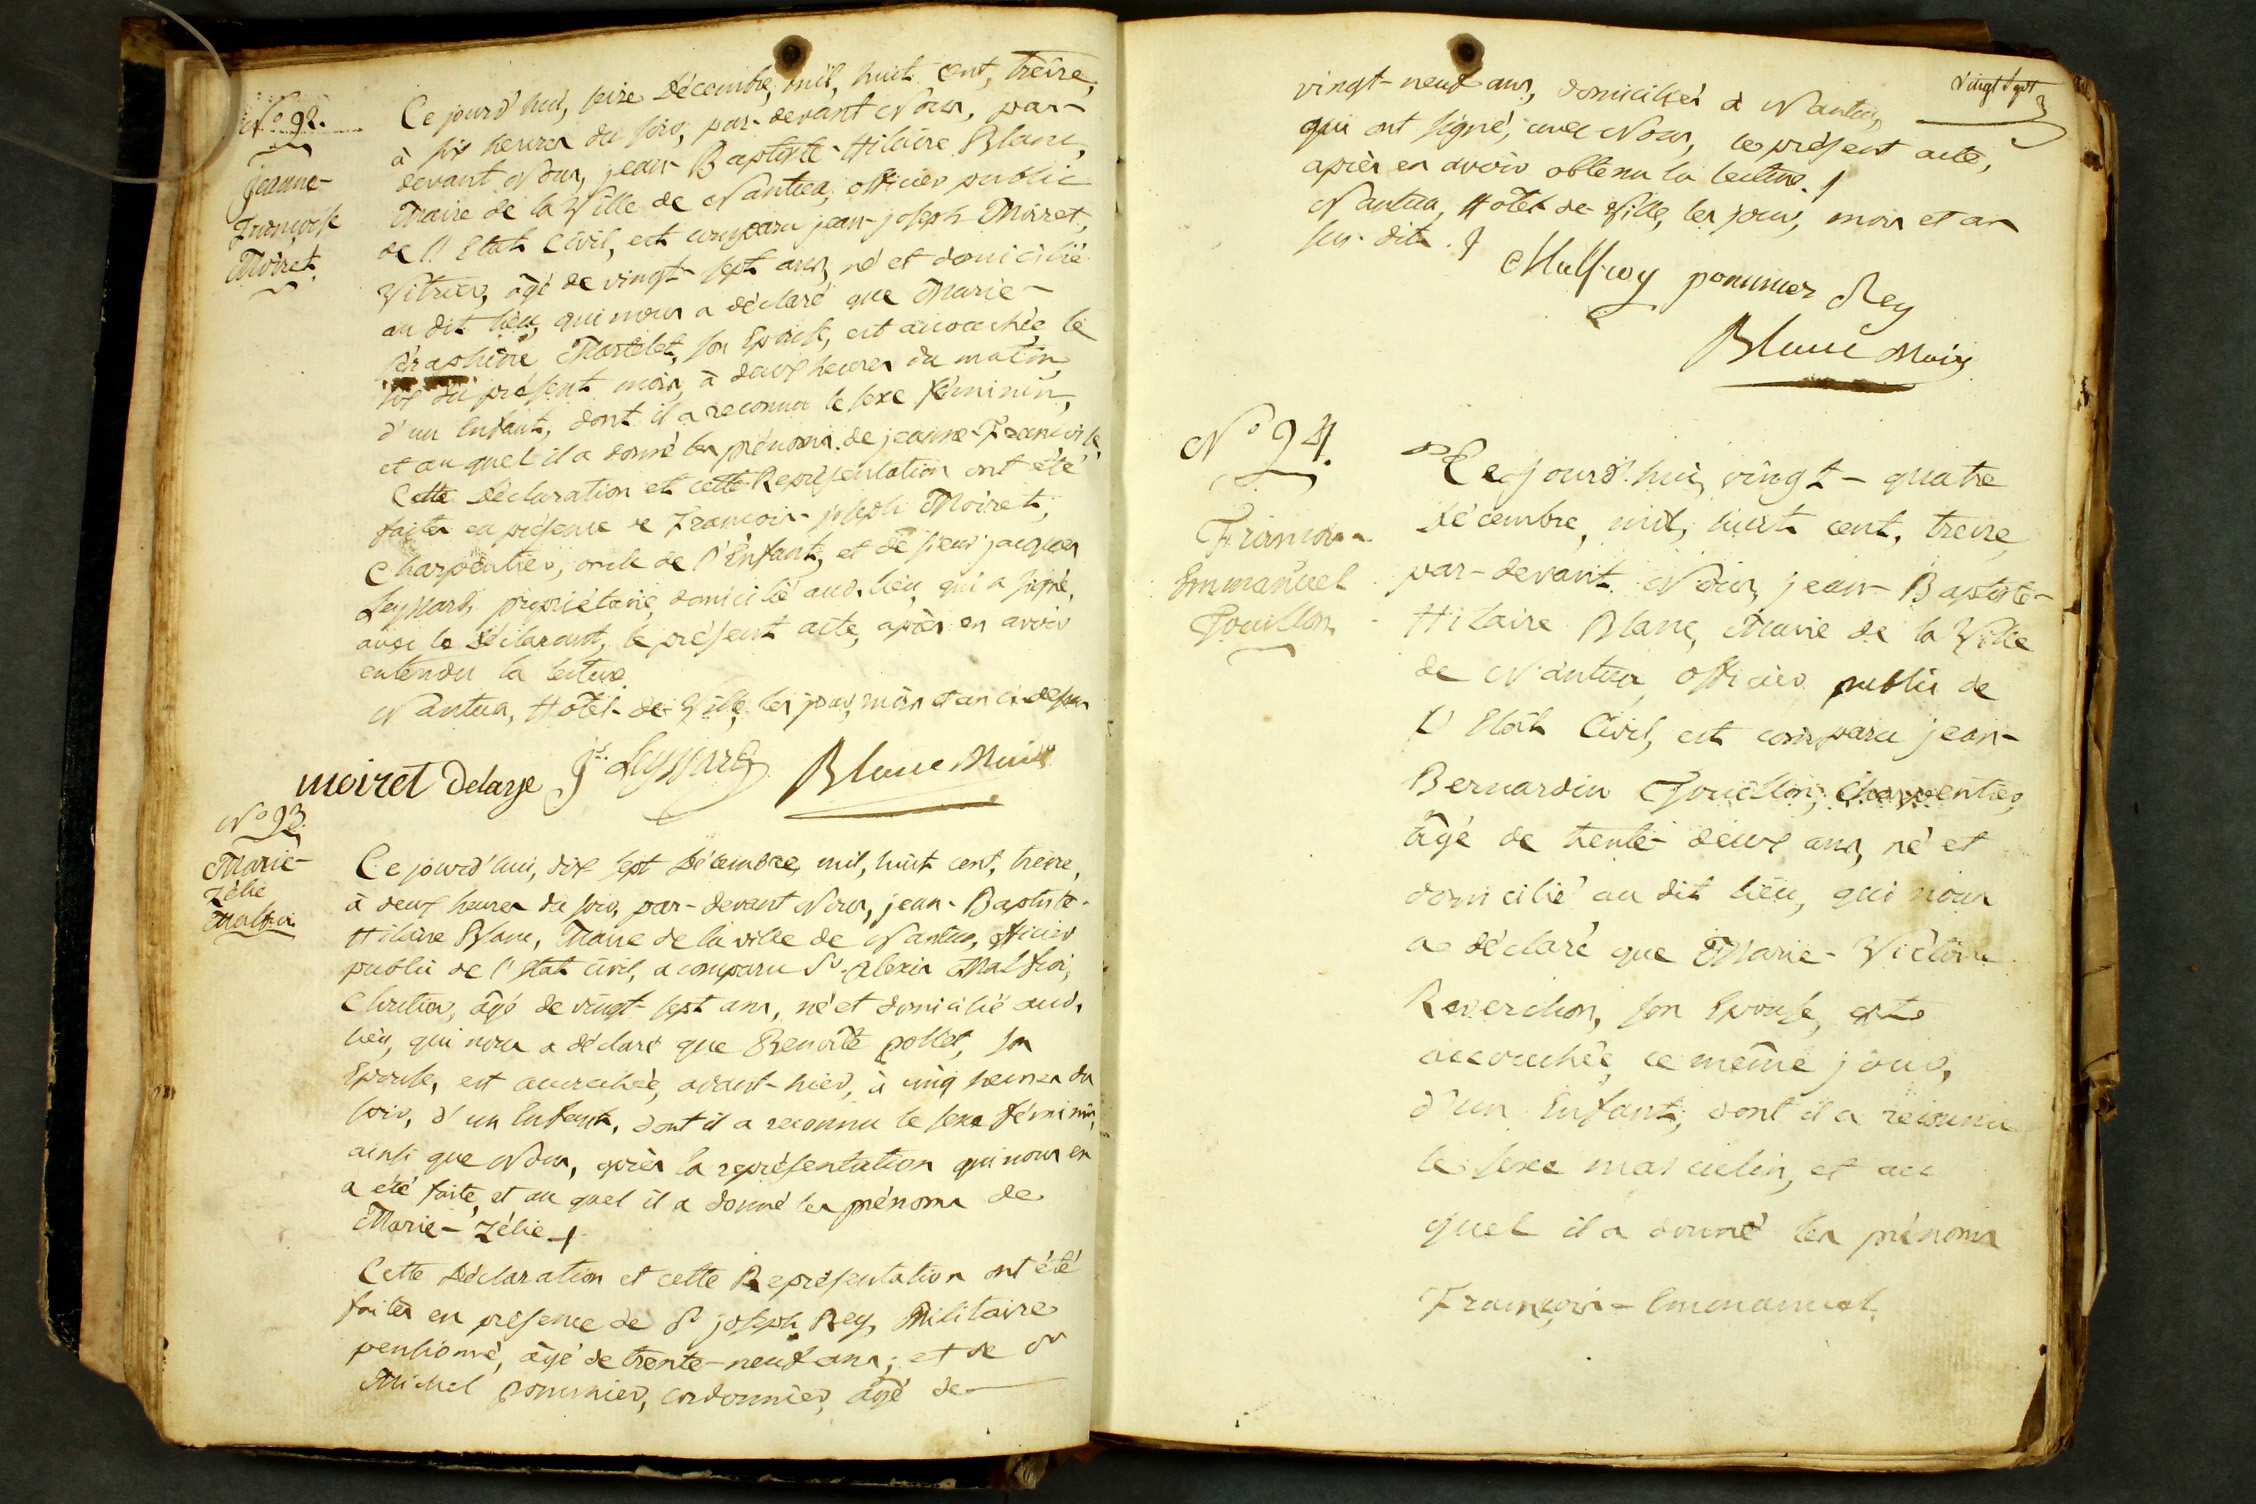 N° 92.
Jeanne-
Françoise
Moiret.
Ce jourd'hui, seize Décembre, mil, huit cent, treize,
à six heures du soir, par-devant Nous, par-
devant Nous, jean-Baptiste-Hilaire Blanc,
Maire de la Ville de Nantua, officier public
de l'Etat Civil, est comparu jean-joseph Moiret,
Vitrier, âgé de vingt-sept ans, né et domicilié
au dit lieu, qui nous a déclaré que Marie-
Séraphine Martelet, son Epouse, est accouchée, le
six du présent mois, à deux heures du matin,
d'un Enfant, dont il a reconnu le sexe féminin,
et au quel il a donné les prénoms de jeanne-Françoise.
Cette Déclaration et cette Représentation ont été
faites en présence de François-joseph Moiret,
Charpentier, oncle de l'Enfant, et de sieur jacques
Leyssard, propriétaire, domicilié aud. lieu, qui a signé,
avec le Déclarant, le présent acte, après en avoir
entendu la lecture.
Nantua, Hôtel-de-Ville, les jour, mois et an ci-dessus
moiret Jes. Leyssard Blanc Maire
N° 93.
Marie-
Zélie
Ce jourd'hui, dix sept Décembre, mil, huit cent, treize,
à deux heures du soir, par-devant Nous, jean-Baptiste-
Hilaire Blanc, Maire de la ville de Nantua, officier
public de l'Etat Civil, a comparu Sr. Alexis Malfroi,
âgé de vingt-sept ans, né et domicilié aud.
lieu, qui nous a déclaré que Benoite pollet, son
Epouse, est accouchée, avant-hier, à cinq heures du
soir, d'un Enfant, dont il a reconnu le sexe féminin,
ainsi que Nous, après la représentation qui nous en
a été faite, et au quel il a donné les prénoms de
Marie-Zélie.
Cette Déclaration et cette Représentation ont été
faites en présence de Sr joseph Rey, Militaire
pensionné, âgé de trente-neuf ans; et de Sr
Michel pommier, cordonnier, âgé de
vingt sept
vingt-neuf ans, domiciliés à Nantua,
qui ont signé, avec Nous, le présent acte,
après en avoir obtenu la lecture.
Nantua, Hôtel-de-Ville, les jour, mois et an
sus-dits.
Malfroy pommier Rey
Blanc Maire
N° 94.
François-
Emmanuel
Jouillon
Ce jourd'hui, vingt-quatre
Décembre, mil, huit cent, treize,
par-devant Nous, jean-Baptiste-
Hilaire Blanc, Maire de la Ville
de Nantua, officier public de
l'Etat Civil, est comparu jean-
Bernardin Jouillon, Charpentier,
âgé de trente-deux ans, né et
domicilié au dit lieu, qui nous
a déclaré que Marie-Victoire
Reverchon, son Epouse, est
accouchée, ce même jour,
d'un Enfant, dont il a reconnu
le sexe masculin, et au
quel il a donné les prénoms
François-Emmanuel.